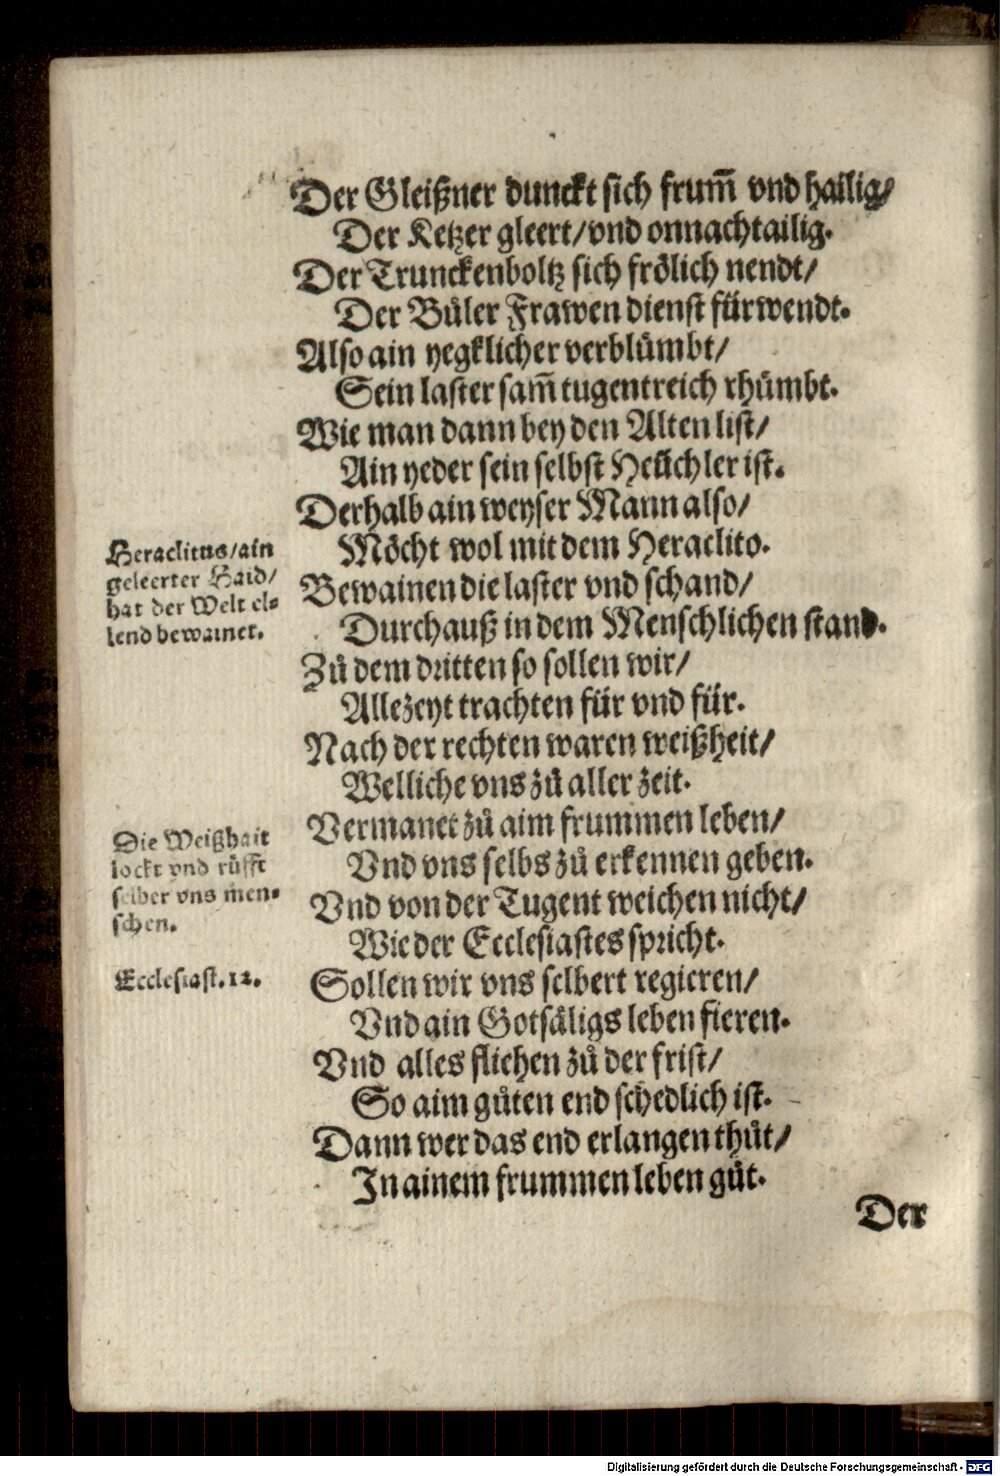 Der Gleißner dunckt sich frum̄ vnd hailig/
Der Ketzer gleert/vnd onnachtailig.
Der Trunckenboltz sich frölich nendt/
Der Bůler Frawen dienst fürwendt.
Also ain yegklicher verblümbt/
Sein laster sam̄ tugentreich rhümbt.
Wie man dann bey den Alten list/
Ain yeder sein selbst Heüchler ist.
Derhalb ain weyser Mann also/
Möcht wol mit dem Heraclito.
Bewainen die laster vnd schand/
Durchauß in dem Menschlichen stand.
Zů dem dritten so sollen wir/
Allezeyt trachten für vnd für.
Nach der rechten waren weißheit/
Welliche vns zů aller zeit.
Vermanet zů aim frummen leben/
Vnd vns selbs zů erkennen geben.
Vnd von der Tugent weichen nicht/
Wie der Ecclesiastes spricht.
Sollen wir vns selbert regieren/
Vnd ain Gotsäligs leben fieren.
Vnd alles fliehen zů der frist/
So aim gůten end schedlich ist.
Dann wer das end erlangen thůt/
In ainem frummen leben gůt.
Der
Heraclitus/ain
geleerter Haid/
hat der Welt el=
lend bewainet.
Die Weißhait
lockt vnd růfft
selber vns men=
schen.
Ecclesiast.12.
Digitalisierung gefördert durch die Deutsche Forschungsgemeinschaft - DFG